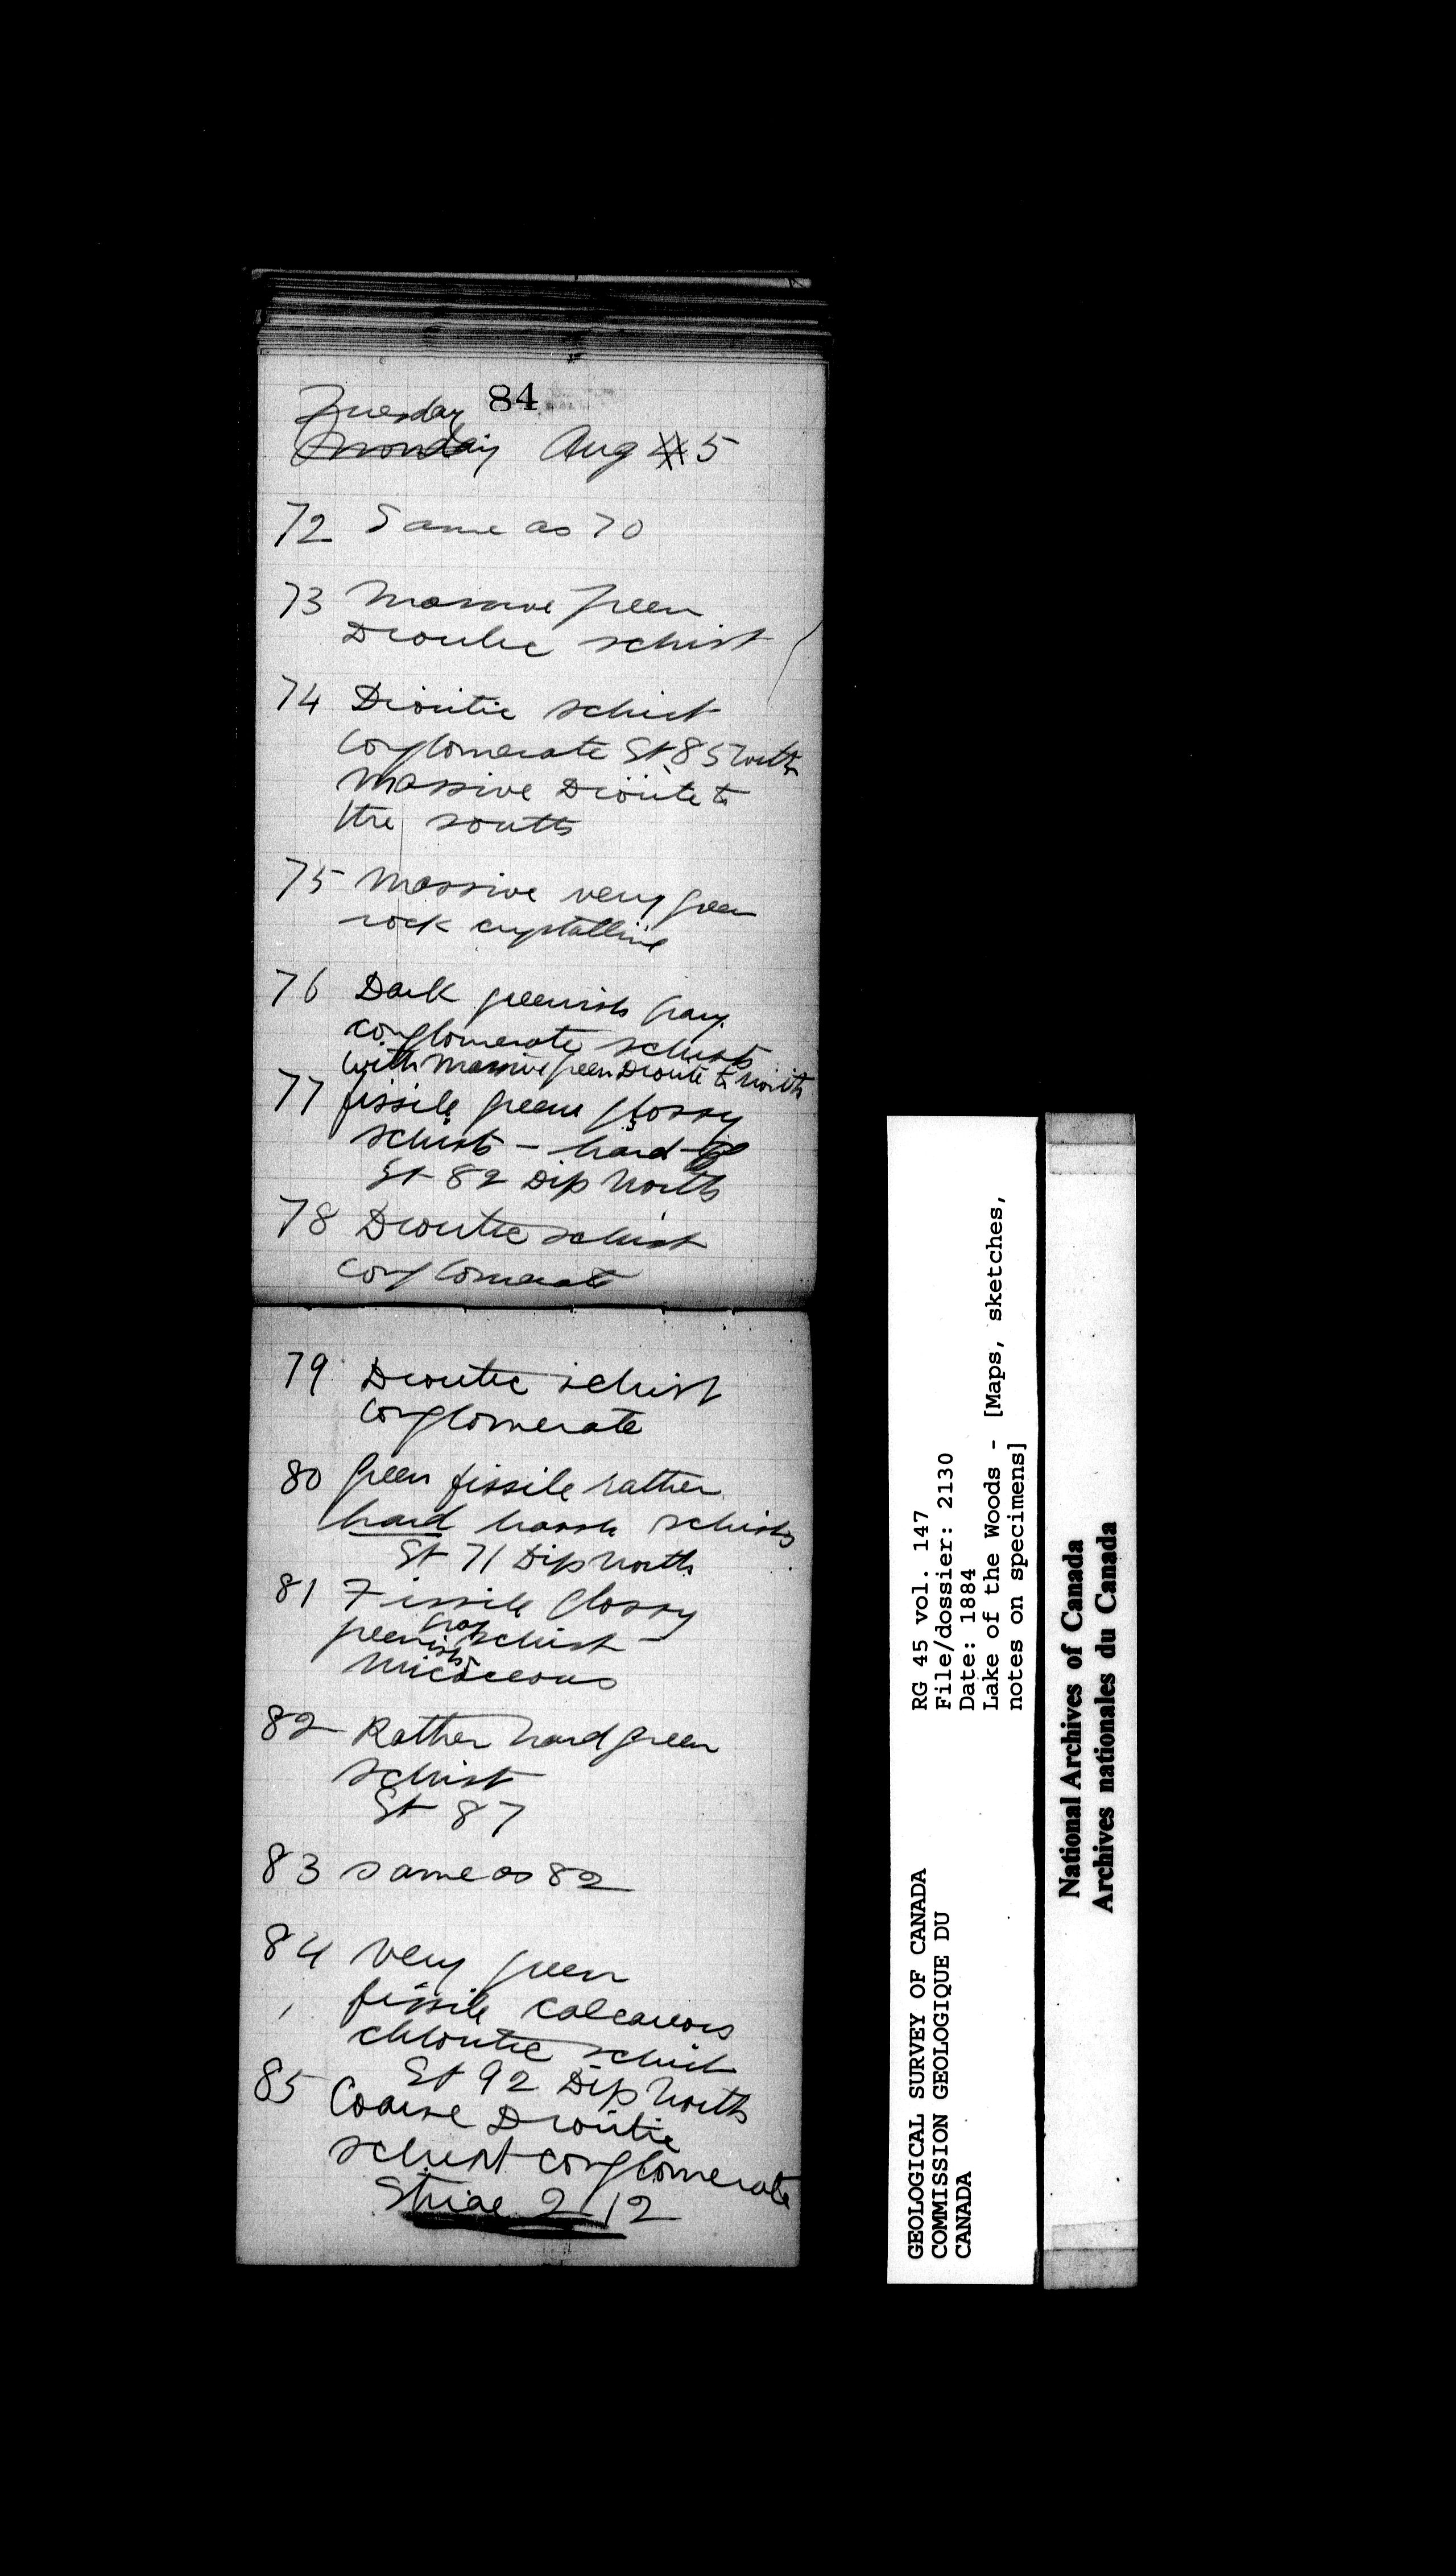 84
Tuesday
Monday Aug 4 5
72 Same as 70
73 Massive green
Dioritic schist
74 Dioritic schist
conglomerate St 85 with
massive Diorite to
the south
75 Massive very green
rock crystalline
76 Dark greenish gray
conglomerate schists
with massive green Diorite to North
77 fissile green glossy
schists - hard
St 82 Dip North
78 Dioritic schist
conglomerate
79 Dioritic schist
conglomerate
80 green fissile rather
hard harsh schists
St 71 Dip North
81 Fissile glossy
greenish gray schist -
micaceous
82 Rather hard green
schist
St 87
83 same as 82
84 very green
fissile calcareous
chloritic schist
St 92 Dip North
85 Coarse Dioritic
schist conglomerate
Striae 212
GEOLOGICAL SURVEY OF CANADA
COMMISSION GEOLOGIQUE DU
CANADA
RG 45 vol. 147
File/dossier: 2130
Date: 1884
Lake of the Woods - [Maps, sketches,
notes on specimens]
National Archives of Canada
Archives nationales du Canada